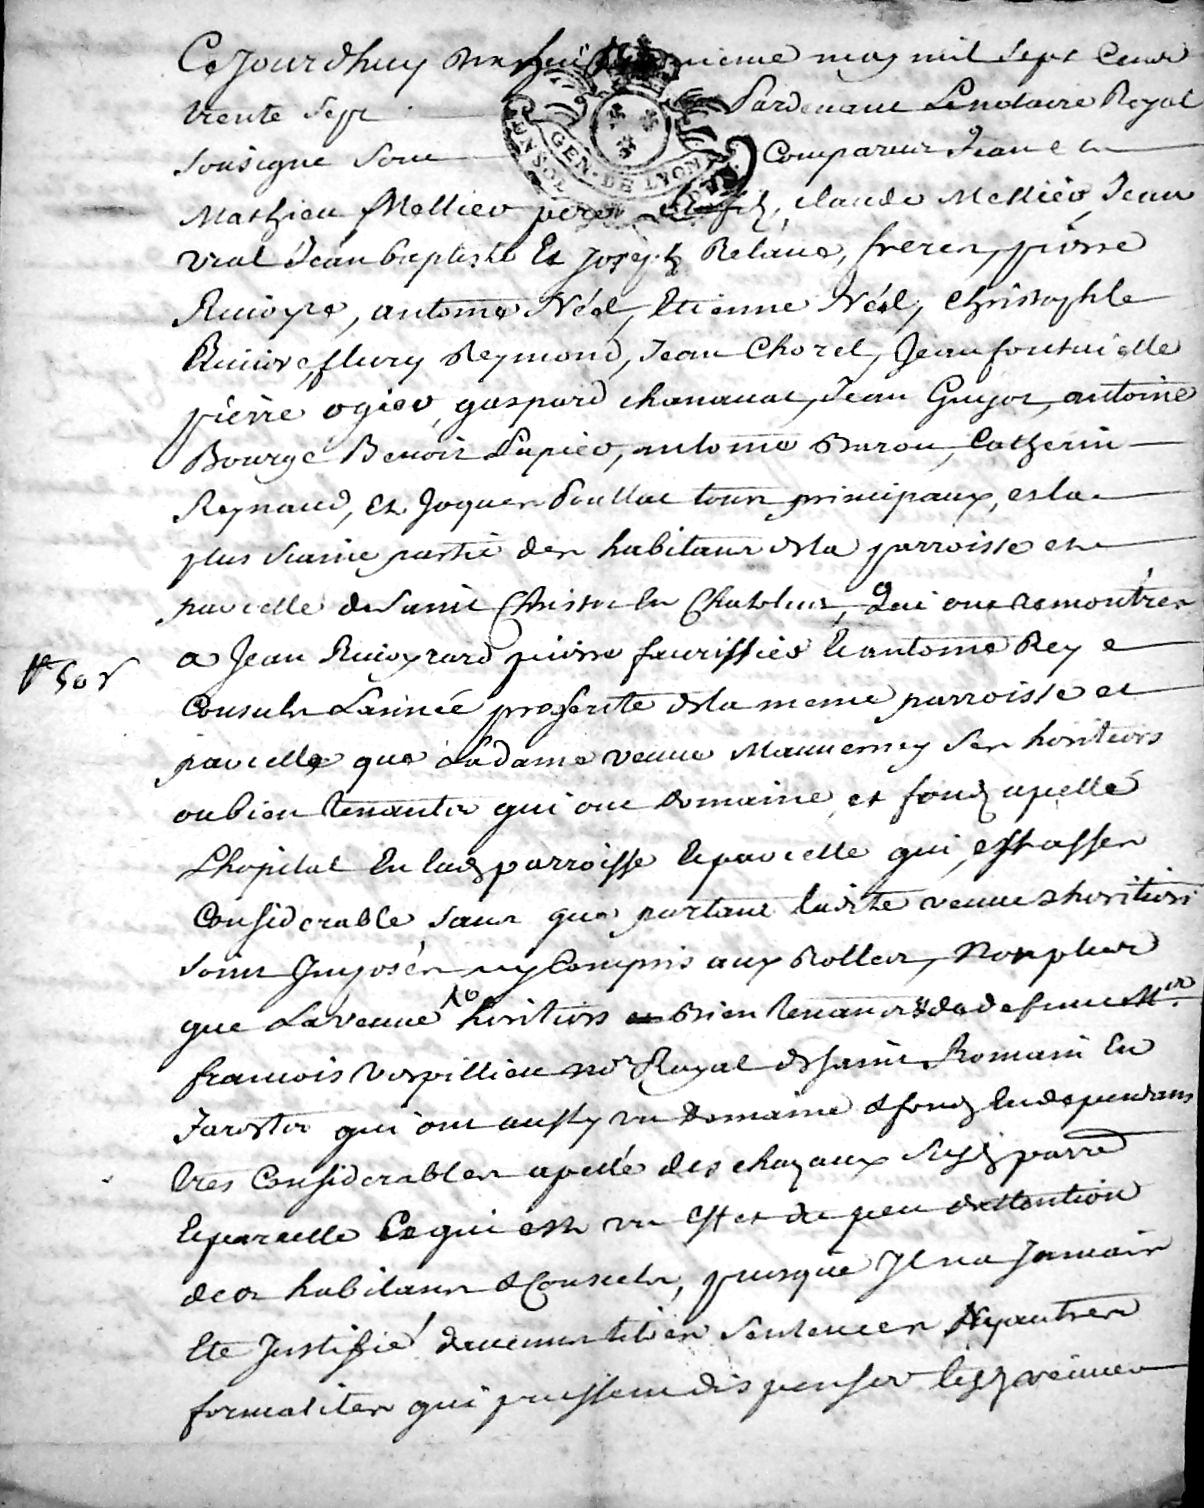 Ce Jourdhuy vingt huitième may mil sept Cent
trente sept Pardevant Lenotaire Royal
Sousigne Sont Comparus Jean et
Mathieu Mellier pere et fils, claude Mellier, Jean
vial Jean baptiste Et Joseph Relave, freres, pierre
antoine Néel, Etienne Néel, Christophle
fleury Reymond, Jean Chorel, Jean
pierre ogier, gaspard chanavat, Jean Guyot, antoine
Bourge Benoit Papier, antoine Baron, Catherin
Reynaud, Et Jaques Poullat tous principaux, et la
plus Saine partie des habitans dela parroisse et
parcelle de Saint Christo en Chatelus, Qui ont remontres
a Jean pierre Et antoine Rey
Consuls Lannée presente dela meme parroisse et
parcelle que Ladame veuve Mauverney Ses heritiers
oubien tenantes qui ont domaine et fonds apellé
Lhopital En lade parroisse Eparcelle qui est asses
Considerable, sans que partant ladite veuve & heritiers
soint Imposés ny Compris aux Rolles, Non plus
que La veuve heritiers bien tenants de defunt Mre
francois Verpillieu nore Royal de saint Romain En
Jarestz qui ont aussy un Domaine & fonds En dependans
tres Considerables apellé des chazaux parre
Eparcelle Ce qui est un Effet de peu dattention
des habitans & Consuls, puisque Il na Jamais
Ete Justifié daucuns titres Sentences Ny autres
formalites qui puissent dispenser lesd veuves